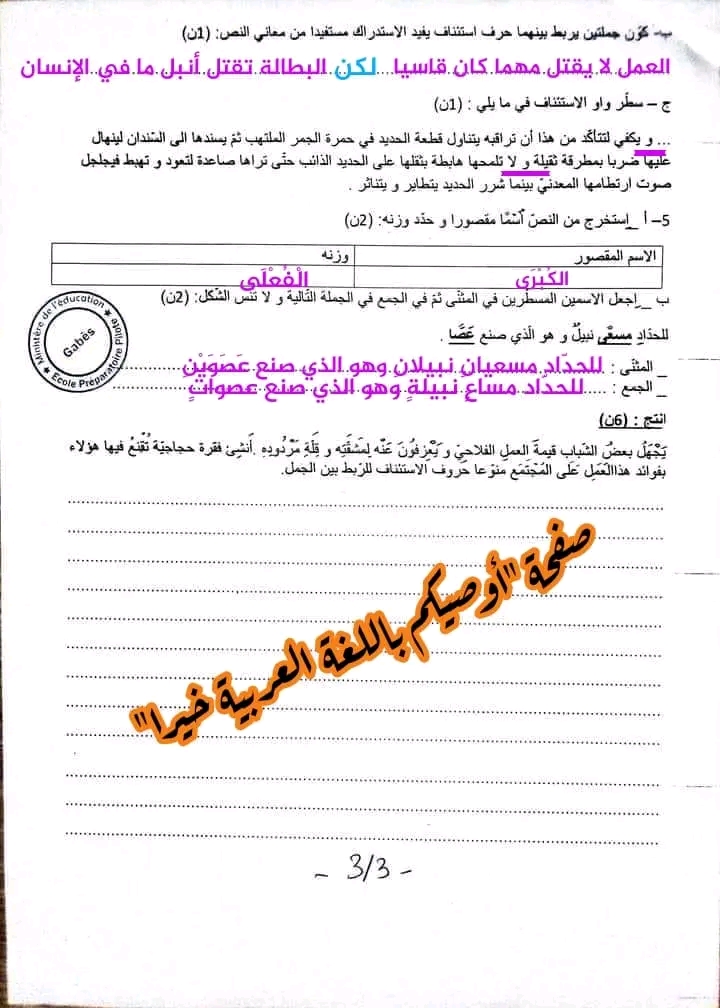 ب- كوّن جملتين يربط بينهما حرف استئناف يفيد الاستدراك مستفيدا من معاني النص: (1ن)
العمل لا يقتل مهما كان قاسيا لكن البطالة تقتل أنبل ما في الإنسان
ج – سطّر واو الاستئناف في ما يلي : (1ن)
... و يكفي لتتأكد من هذا أن تراقبه يتناول قطعة الحديد في حمرة الجمر الملتهب ثمّ يسندها الى السّندان لينهال
عليها ضربا بمطرقة ثقيلة و لا تلمحها هابطة بثقلها على الحديد الذائب حتّى تراها صاعدة لتعود و تهبط فيجلجل
صوت ارتطامها المعدنيّ بينما شرر الحديد يتطاير و يتناثر .
5– أ _إستخرج من النصّ اسْمًا مقصورا و حدّد وزنه: (2ن)
الاسم المقصور وزنه
الكُبْرَى الْفُعْلَى
ب _ إجعل الاسمين المسطرين في المثنّى ثمّ في الجمع في الجملة التّالية و لا تنس الشّكل: (2ن)
للحدّادِ مسعًى نبيلٌ و هو الّذي صنع عَصًا .
_ المثنّى : للحدّاد مسعيان نبيلان وهو الذي صنع عَصَوَيْنِ
_ الجمع : للحدّاد مساعٍ نبيلةٍ وهو الذي صنع عصواتٍ
Ministère de l'éducation
Gabès
Ecole Préparatoire Pilote
انتج : (6ن)
يَجْهَلُ بعضُ الشّباب قيمةَ العملِ الفلاحيّ و يَعْزِفُونَ عَنْه لِمَشقّتِه و قِلّةِ مَرْدُودِهِ .أنشِئ فقرة حجاجيّة تُقْنِعُ فيها هؤلاء
بفوائد هذاالعَمَلِ عَلَى المُجْتَمَعِ منوّعا حروف الاستئناف للرّبط بين الجمل.
صفحة "أوصيكم باللغة العربية خيرا"
- 3/3 -